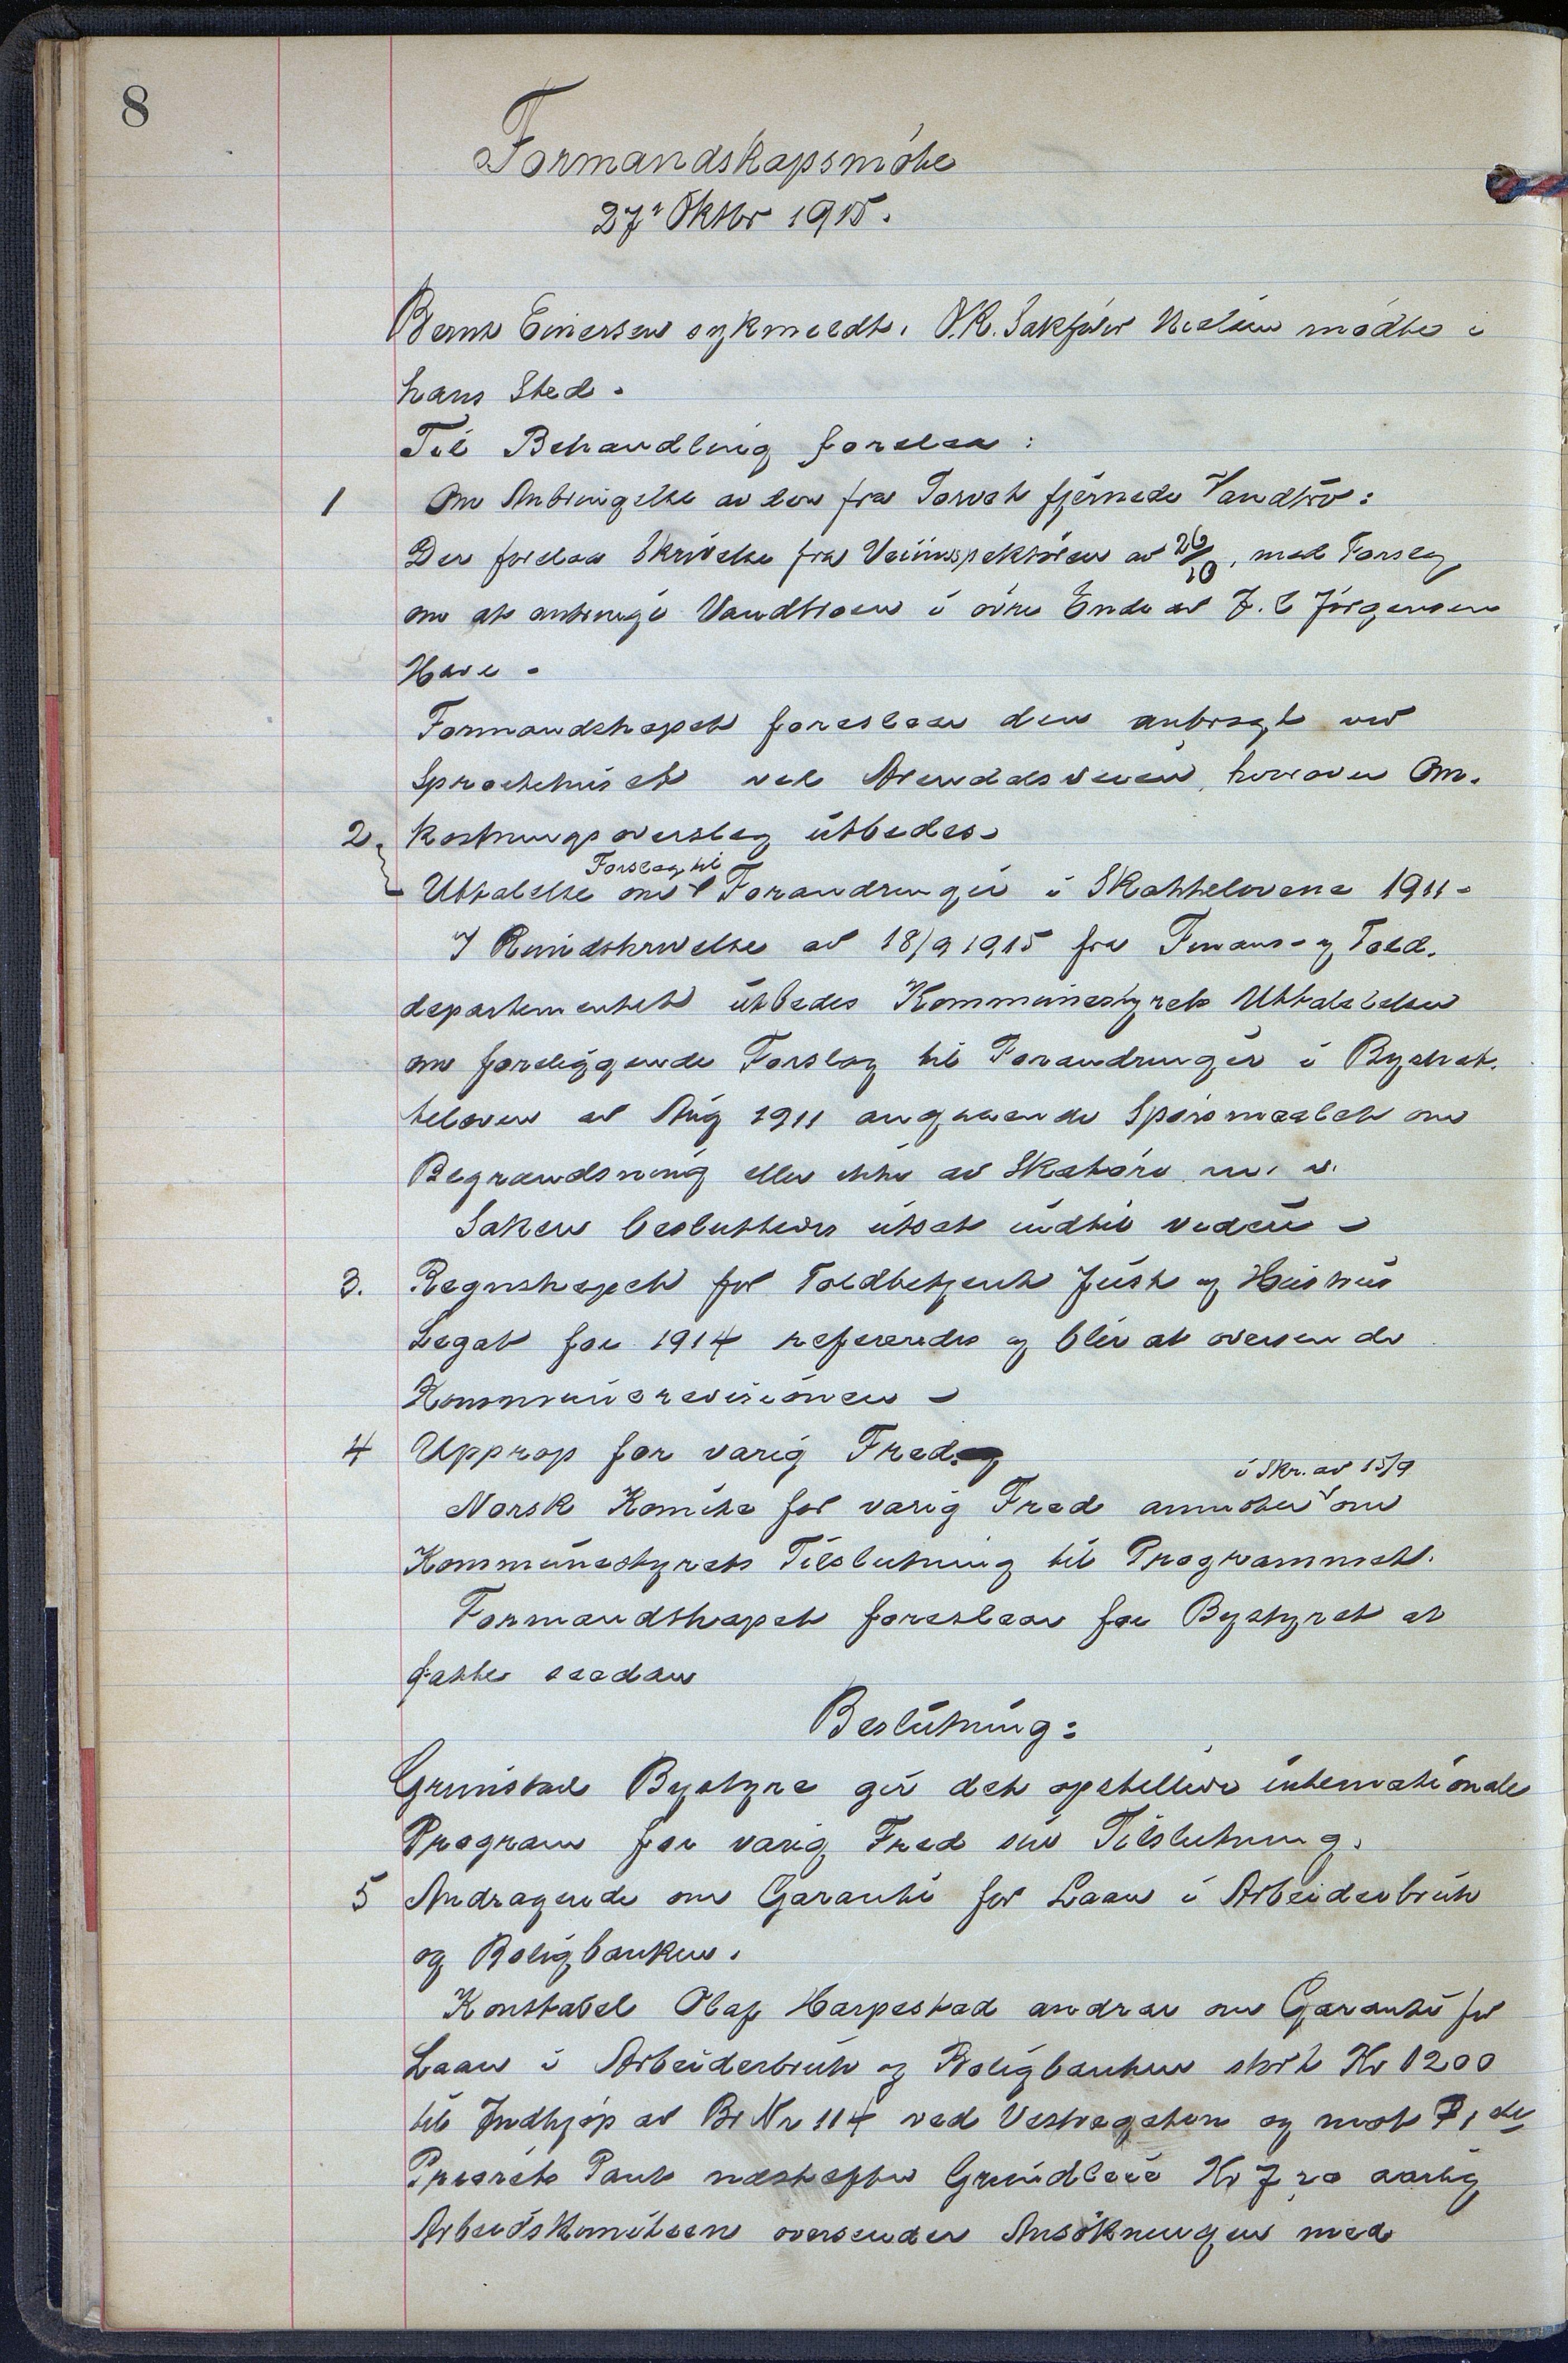 8
Formandskapsmöte
27' Oktbr 1915.
Bernt Einersen sykmeldt. O.R. Sakfører Nielsen mødte i
hans Sted.
Til Behandling forelaa:
1 Om Anbringelse av den fra Torvet fjernede Vandtro:
Der forelaa Skrivelse fra Veiinspektören av 26/10, med Forslag
om at anbringe Vandtroen i övre Ende av J. C Jörgensens
Have.
Formandskapet foreslaar den anbragt ved
Sprøitehuset ved Arendalsveien, hvorover Om-
2. kostningsoverslag utbedes.
Uttalelse om Forslag til Forandringer i Skattelovene 1911.
I Rundskrivelse av 18/9 1915 fra Finans- og Told-
departementet utbedes Kommunestyrets Uttalelser
om foreliggende Forslag til Forandringer i Byskat-
teloven av Aug 1911 angaaende Spörsmaalet om
Begrændsning eller ikke av Skatöre m. v.
Saken besluttedes utsat indtil videre
3. Regnskapet for Toldbetjent Just og Hustrus
Legat for 1914 refereredes og blir at oversende
Kommunerevisionen
4 Upprop for varig Fred.
Norsk Komite for varig Fred anmoder i Skr. av 15/9 om
Kommunestyrets Tilslutning til Programmet.
Formandskapet foreslaar for Bystyret at
fatte saadan
Beslutning:
Grimstad Bystyre gir det opstillede internationale
Program for varig Fred sin Tilslutning.
5 Andragende om Garanti for Laan i Arbeiderbruk
og Boligbanken.
Konstabel Olaf Harpestad andrar om Garanti for
Laan i Arbeiderbruk og Boligbanken stort Kr 1200
til Indkjøp av Br Nr 114 ved Vestregaten og mot 1ste
Prioritets Pant næstefter Grundleie Kr 7 20 aarlig
Arbeidskomiteen oversender Ansökningen med